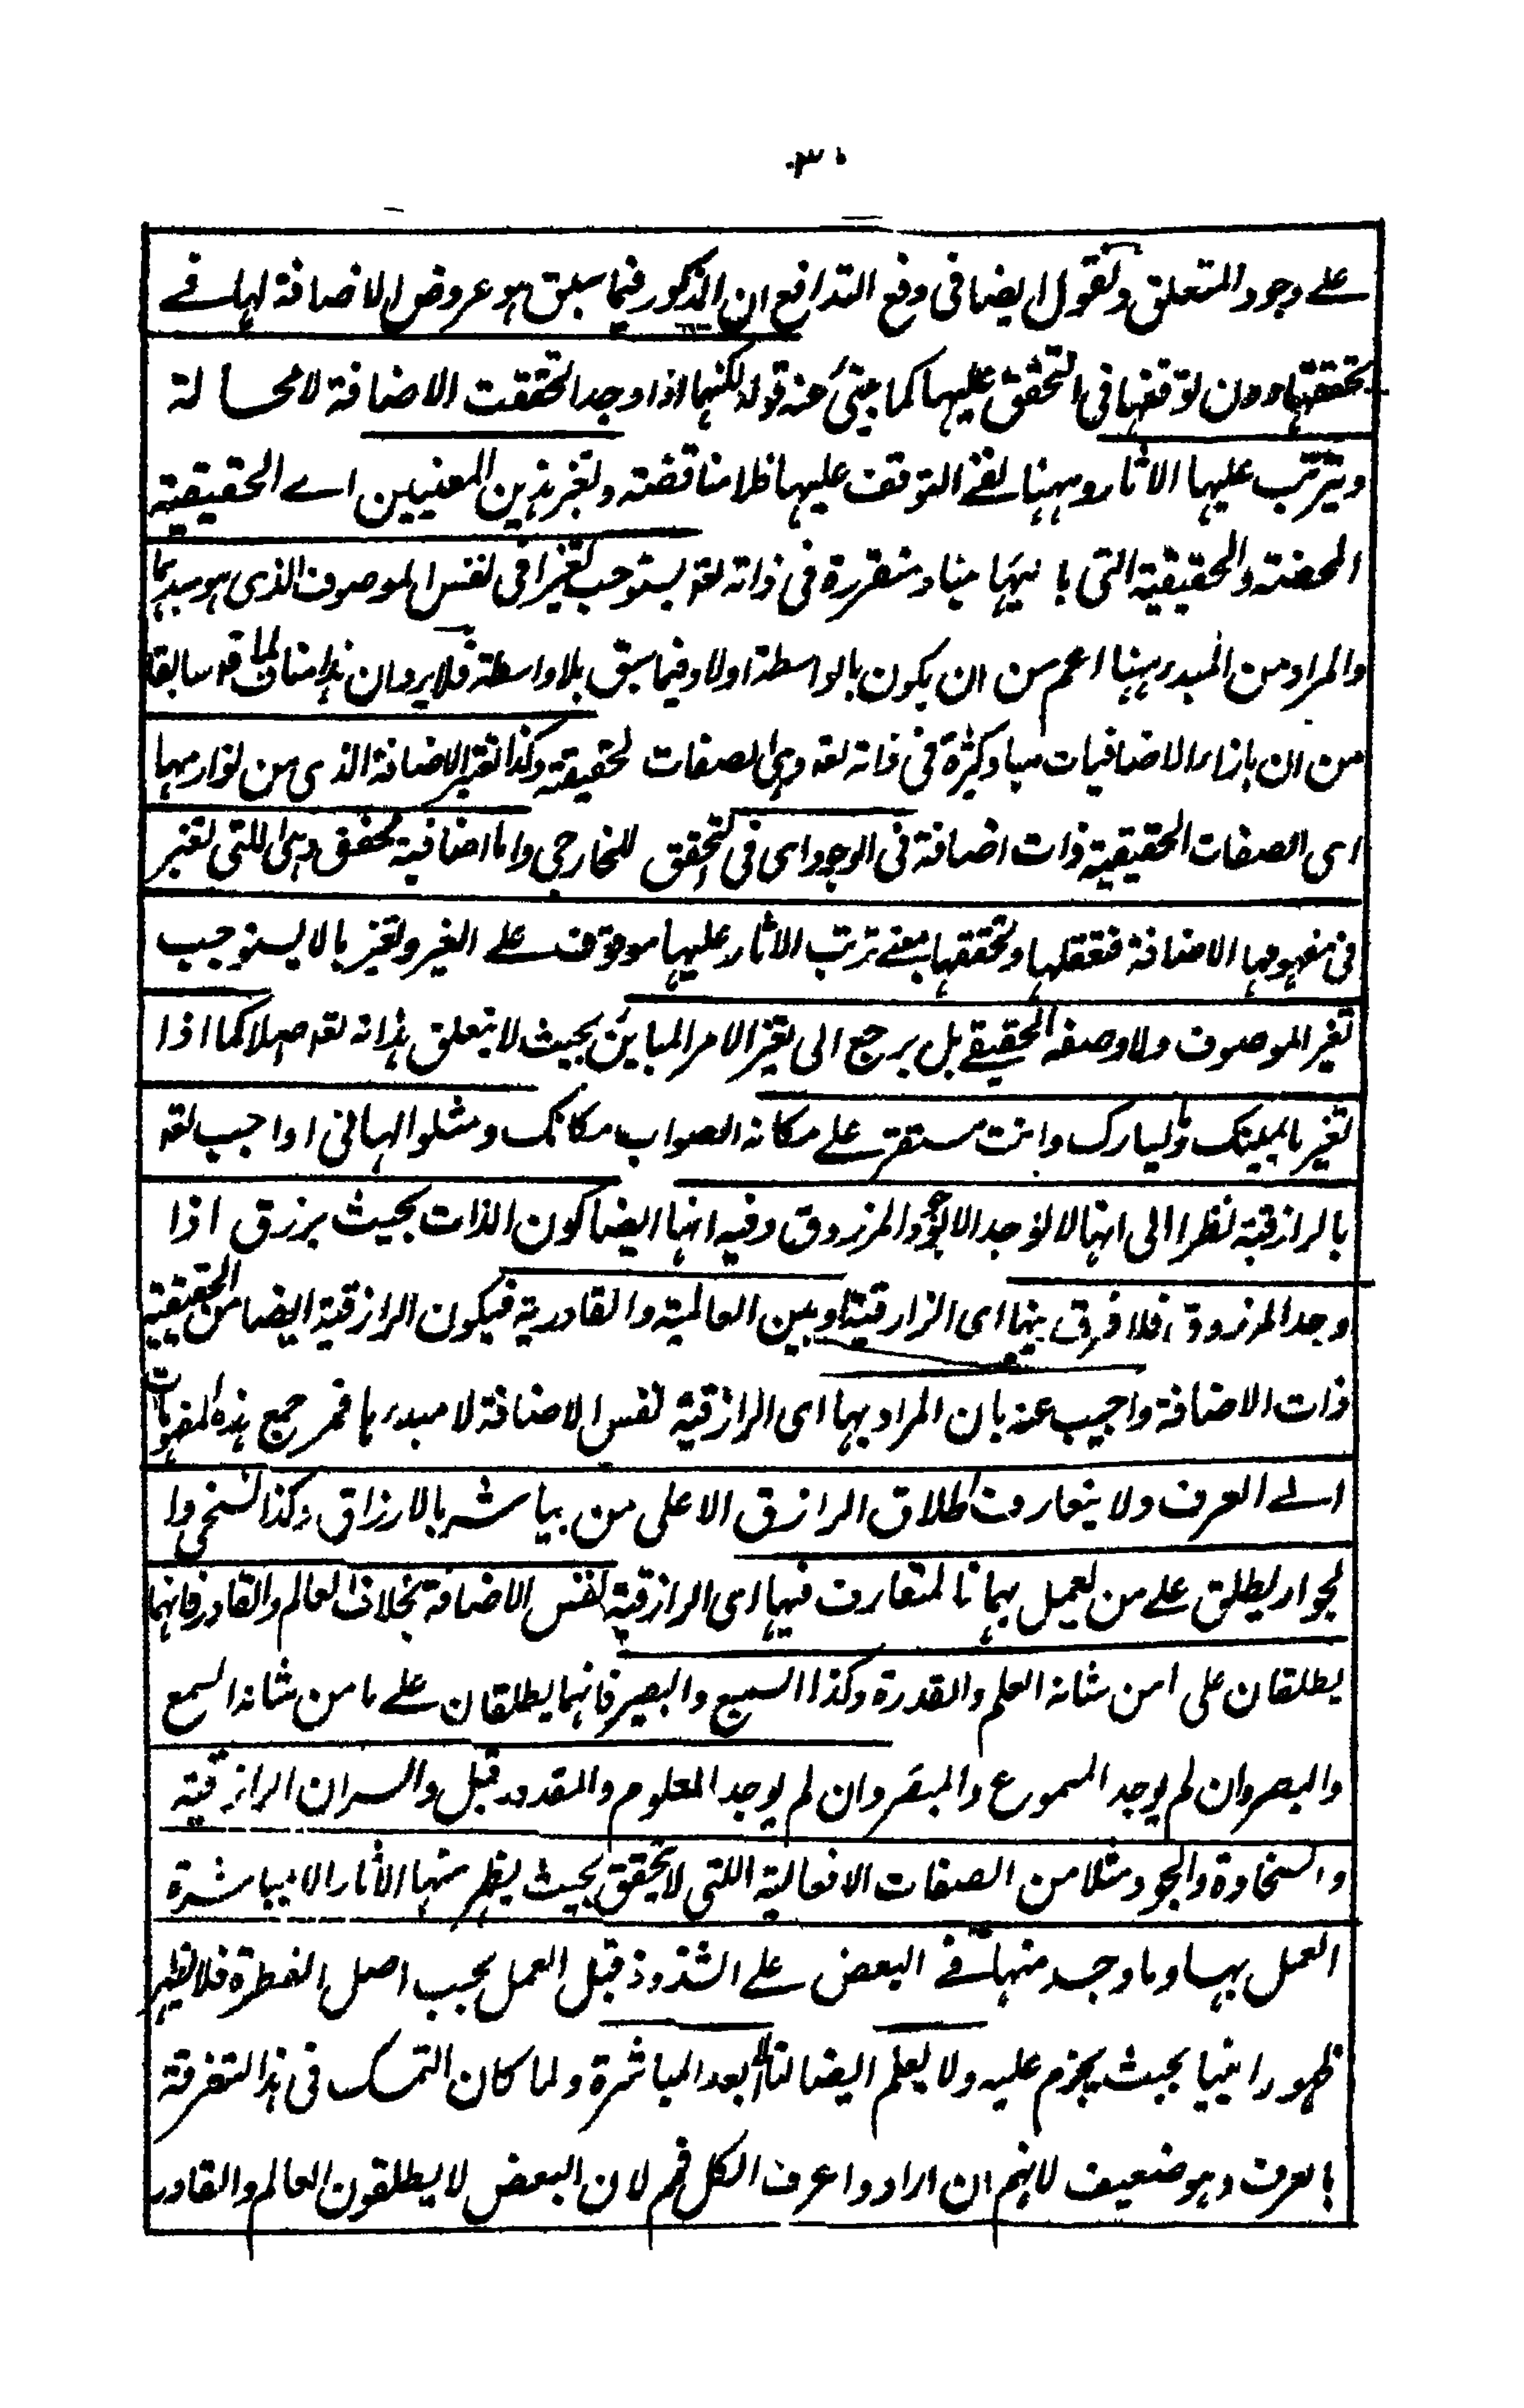 ٣٠
على وجود المتعلق ونقول ايضا فى دفع التدافع ان المذكور فيما سبق هو عروض الاضافة لها في
تحققها دون توقفها فى التحقق عليها كما ينبئ عنه قوله لكنهما اذا وجدا تحققت الاضافة لا محالة
ويترتب عليها الاثار وههنا نفي التوقف عليها فلا مناقضة وتغير هذين المعنيين اے الحقيقية
المحضة والحقيقية التى بازائها مباد متقررة فى ذاته تعه يستوجب تغيرا فى نفس الموصوف الذى هو مبدأهما
والمراد من المبدء ههنا اعم من ان يكون بالواسطة اولا وفيما سبق بلا واسطة فلا يرد ان هذا مناف لما قد سابقا
من ان بازاء الاضافيات مبادى كثرة فى ذاته تعه وهى الصفات الحقيقية وكذا تغير الاضافة الذى من لوازمها
اى الصفات الحقيقية ذات اضافة فى الوجود اى فى التحقق الخارجى واما اضافية محضة وهى اللتى تعتبر
فى مفهومها الاضافة فتعقلها وتحققها بمعنے ترتب الاثار عليها موقوف علے الغير وتغيرها لا يستوجب
تغير الموصوف ولا وصفه الحقيقے بل يرجع الى تغير الامر المباين بحيث لا يتعلق بذاته تعه اصلا كما اذا
تغير ما بيمينك وليسارك وانت مستقر علے مكانه الصواب مكانك ومثلوا لها فى الواجب تعه
بالرازقية نظرا الى انها لا توجد الا بوجود المرزوق وفيه انها ايضا كون الذات بحيث يرزق اذا
وجد المرزوق فلا فرق بينها اى الرازقية وبين العالمية والقادرية فيكون الرازقية ايضا من الحقيقية
ذات الاضافة واجيب عنه بان المراد بها اى الرازقية نفس الاضافة لا مبدءها فمرجع هذه المفهومات
الے العرف ولا يتعارف اطلاق الرازق الا على من يباشر بالارزاق وكذا السخى وا
لجواد يطلق علے من يعمل بهما فالمتعارف فيها اى الرازقية نفس الاضافة بخلاف العالم والقادر فانهما
يطلقان على من شانه العلم والقدرة وكذا السميع والبصير فانهما يطلقان علے ما من شانه السمع
والبصر وان لم يوجد المسموع والمبصر وان لم يوجد المعلوم والمقدور قبل والسر ان الرازقية
والسخاوة والجود مثلا من الصفات الافعالية اللتى لا تحقق بحيث يظهر منها الاثار الا بمباشرة
العمل بها وما وجد منها فے البعض علے الشذوذ قبل العمل بحسب اصل الفطرة فلا يظهر
ظهورا بينا بحيث يجزم عليه ولا يعلم ايضا لنا الا بعد المباشرة ولما كان التمسك فى هذا التفرقة
بالعرف وهو ضعيف لانهم ان ارادوا عرف الكل فمم لان البعض لا يطلقون العالم والقادر